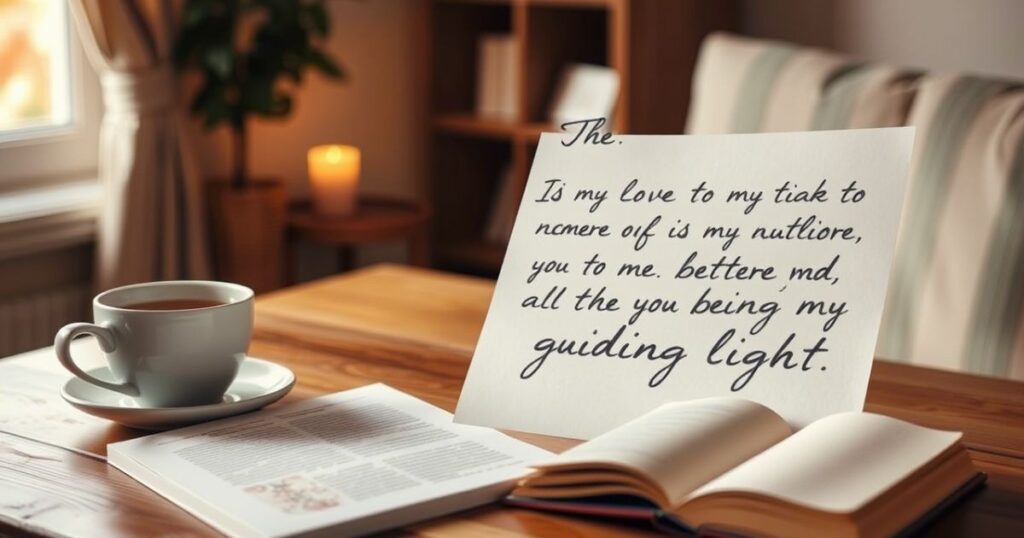 The.
Is my love to my tiak to
ncmere oif is my nutliore,
you to me. bettere, md,
all the you being, my
guiding light.